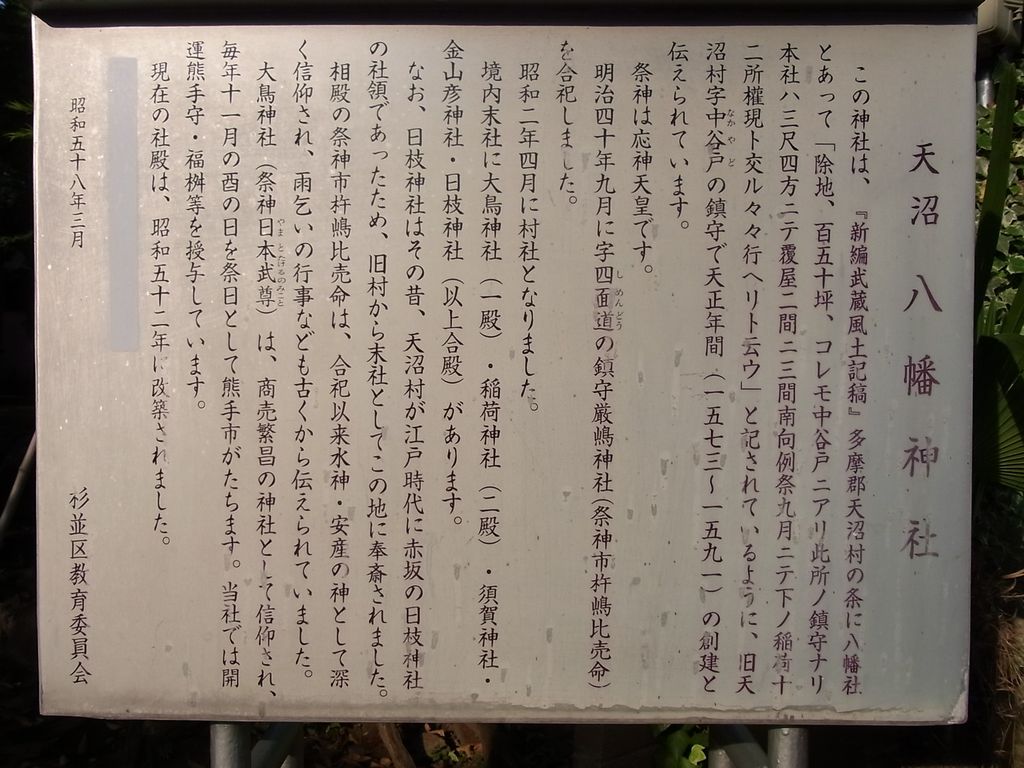 天沼八幡神社
この神社は、『新編武蔵風土記稿』多摩郡天沼村の条に八幡社
とあって「除地、百五十坪、コレモ中谷戸ニアリ此所ノ鎮守ナリ
本社ハ三尺四方ニテ覆屋二間ニ三間南向例祭九月ニテ下ノ稲荷十
二所權現ト交ル々々行ヘリト云ウ」と記されているように、旧天
沼村字中谷戸の鎮守で天正年間（一五七三～一五九一）の創建と
なかやど
伝えられています。
祭神は応神天皇です。
明治四十年九月に字四面道の鎮守厳嶋神社（祭神市杵嶋比売命）
しめんどう
を合祀しました。
昭和二年四月に村社となりました。
境内末社に大鳥神社（一殿）・稲荷神社（二殿）・須賀神社・
金山彦神社・日枝神社（以上合殿）があります。
なお、日枝神社はその昔、天沼村が江戸時代に赤坂の日枝神社
の社領であったため、旧村から末社としてこの地に奉斎されました。
相殿の祭神市杵嶋比売命は、合祀以来水神・安産の神として深
く信仰され、雨乞いの行事なども古くから伝えられていました。
大鳥神社（祭神日本武尊）は、商売繁昌の神社として信仰され、
やまとたけるのみこと
毎年十一月の酉の日を祭日として熊手市がたちます。当社では開
運熊手守・福桝等を授与しています。
現在の社殿は、昭和五十二年に改築されました。
昭和五十八年三月
杉並区教育委員会